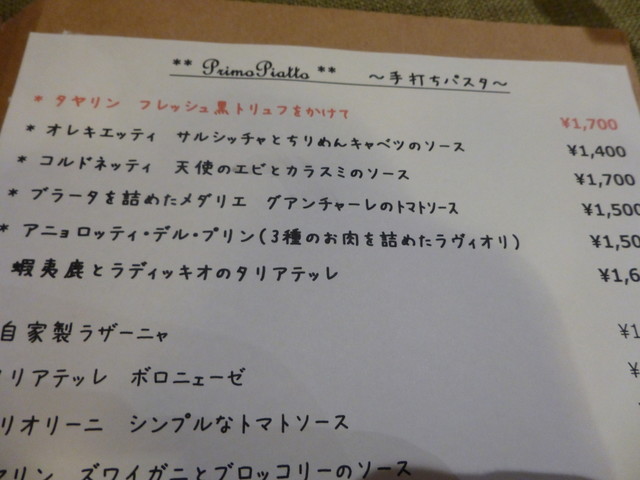 ** Primo Piatto ** ～手打ちパスタ～
* タヤリン フレッシュ黒トリュフをかけて ¥1,700
* オレキエッティ サルシッチャとちりめんキャベツのソース ¥1,400
* コルドネッティ 天使のエビとカラスミのソース ¥1,700
* ブラータを詰めたメダリエ グアンチャーレのトマトソース ¥1,500
* アニョロッティ・デル・プリン(3種のお肉を詰めたラヴィオリ) ¥1,50
蝦夷鹿とラディッキオのタリアテッレ ¥1,6
自家製ラザーニャ ¥1
リアテッレ ボロニェーゼ ¥
リオリーニ シンプルなトマトソース
ヤリン ズワイガニとブロッコリーのソース